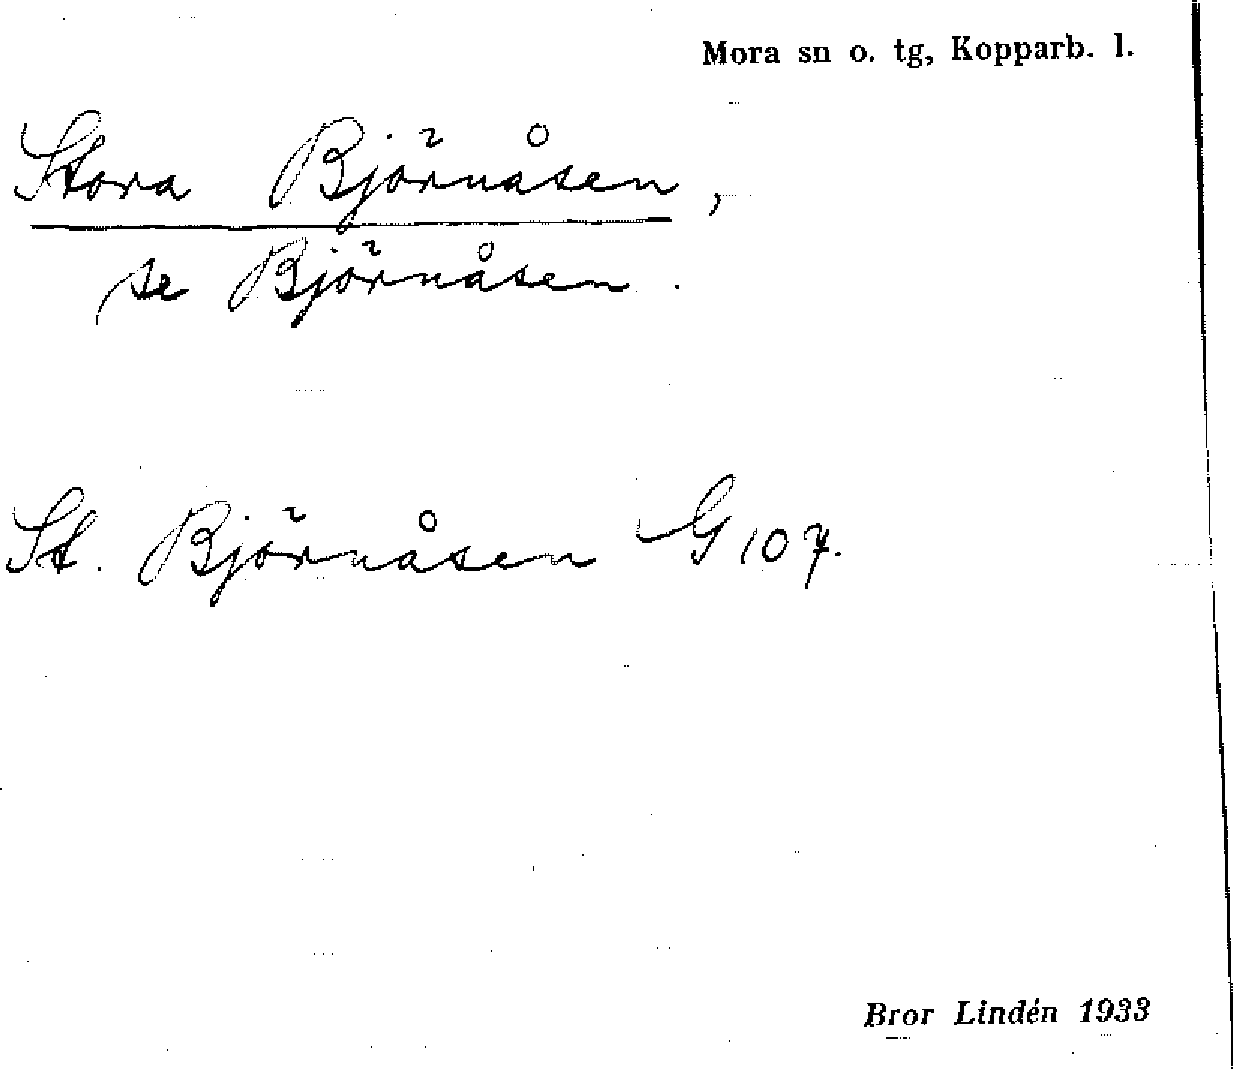 Mora sn o. tg, Kopparb. l.
Stora Björnåsen,
se Björnåsen.
St. Björnåsen G 107.
Bror Lindén 1933